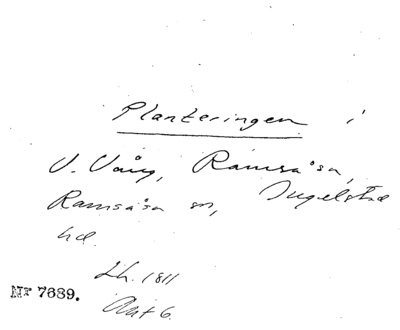 Planteringen i
V. Vång, Ramsåsa,
Ramsåsa sn, Ingelstad
hd.
Lh. 1811
Akt 6.
Nr 7689.